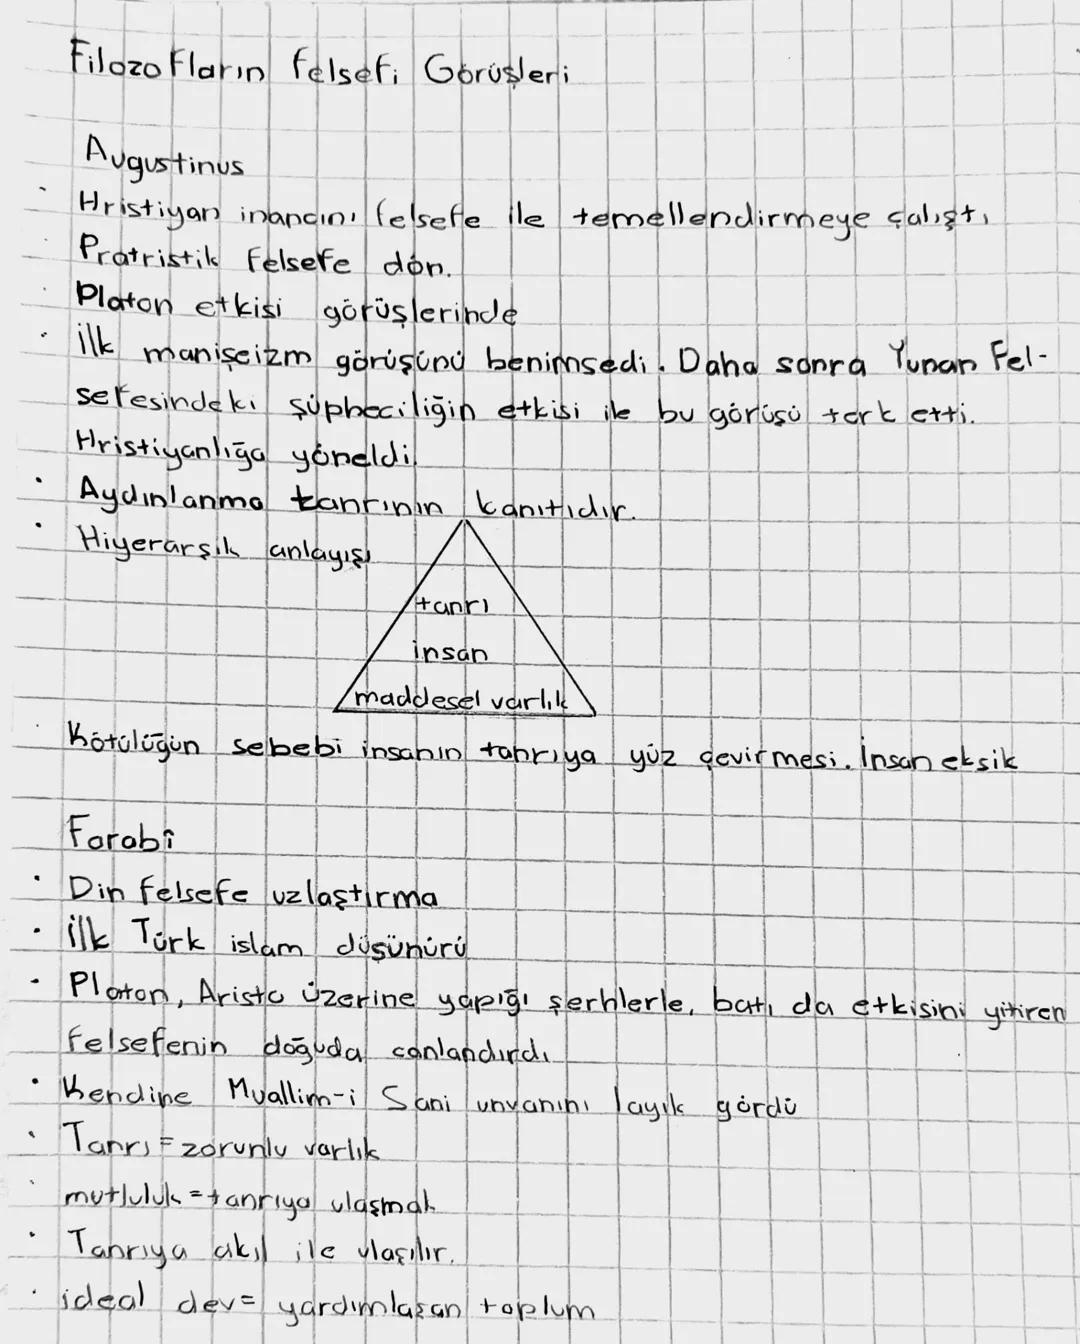 Filozofların felsefi Görüşleri
Augustinus
· Hristiyan inancını felsefe ile temellendirmeye çalıştı
Pratristik felsefe dön.
· Platon etkisi görüşlerinde
· İlk manişeizm görüşünü benimsedi. Daha sonra Yunan Fel-
sefesindeki şüpheciliğin etkisi ile bu görüşü terk etti.
Hristiyanlığa yöneldi.
· Aydınlanma tanrının kanıtıdır.
· Hiyerarşik anlayışı
tanrı
insan
maddesel varlık
· Kötülüğün sebebi insanın tanrıya yüz çevirmesi. İnsan eksik
Farabî
· Din felsefe uzlaştırma
· İlk Türk islam düşünürü
· Platon, Aristo üzerine yapığı şerhlerle, batı da etkisini yitiren
felsefenin doğuda canlandırdı
· Kendine Muallim-i Sani unvanını layık gördü
· Tanrı = zorunlu varlık
· mutluluk = tanrıya ulaşmak
· Tanrıya akıl ile ulaşılır.
· ideal dev = yardımlaşan toplum